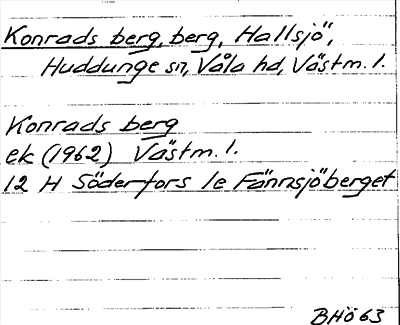 Konrads berg, berg, Hallsjö,
Huddunge sn, Våla hd, Västm. l.
Konrads berg
ek (1962) Västm. l.
12 H Söderfors 1e Fännsjöberget
BHö 63